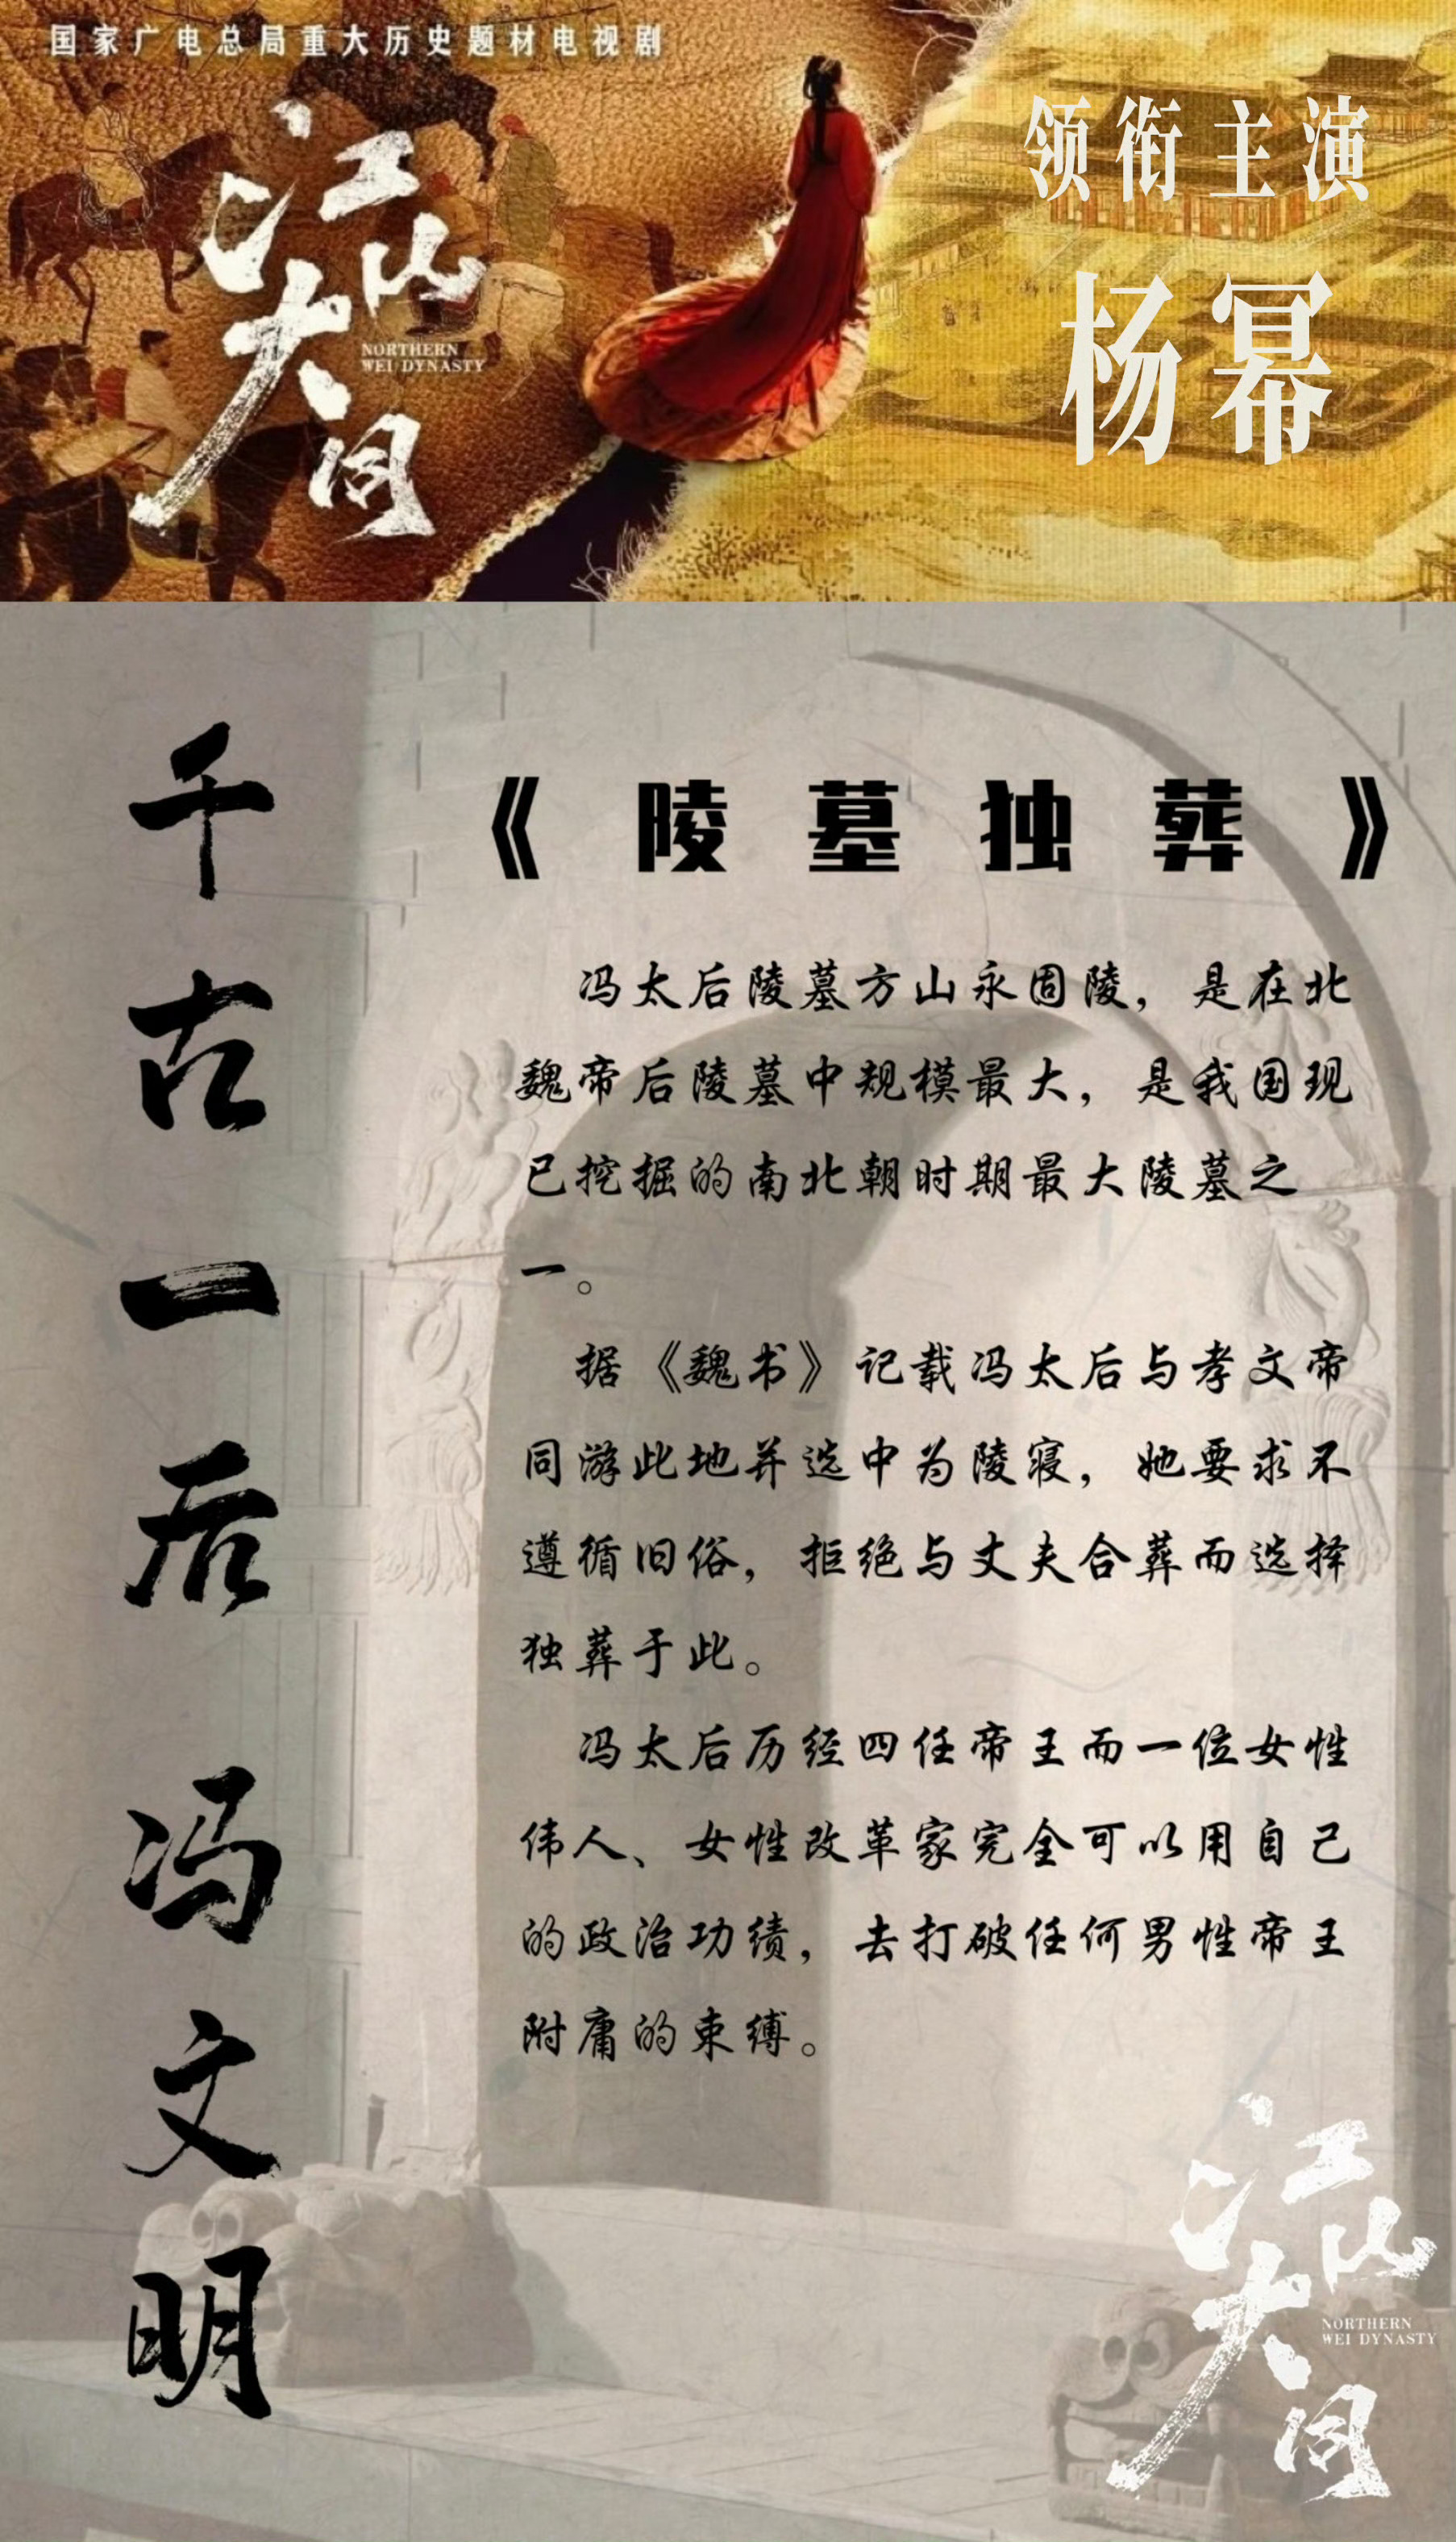 国家广电总局重大历史题材电视剧
江山大同
NORTHERN
WEI DYNASTY
领衔主演
杨幂
千古一后 冯文明
《陵墓独葬》
冯太后陵墓方山永固陵，是在北
魏帝后陵墓中规模最大，是我国现
已挖掘的南北朝时期最大陵墓之
一。
据《魏书》记载冯太后与孝文帝
同游此地并选中为陵寝，她要求不
遵循旧俗，拒绝与丈夫合葬而选择
独葬于此。
冯太后历经四任帝王而一位女性
伟人、女性改革家完全可以用自己
的政治功绩，去打破任何男性帝王
附庸的束缚。
江山大同
NORTHERN
WEI DYNASTY